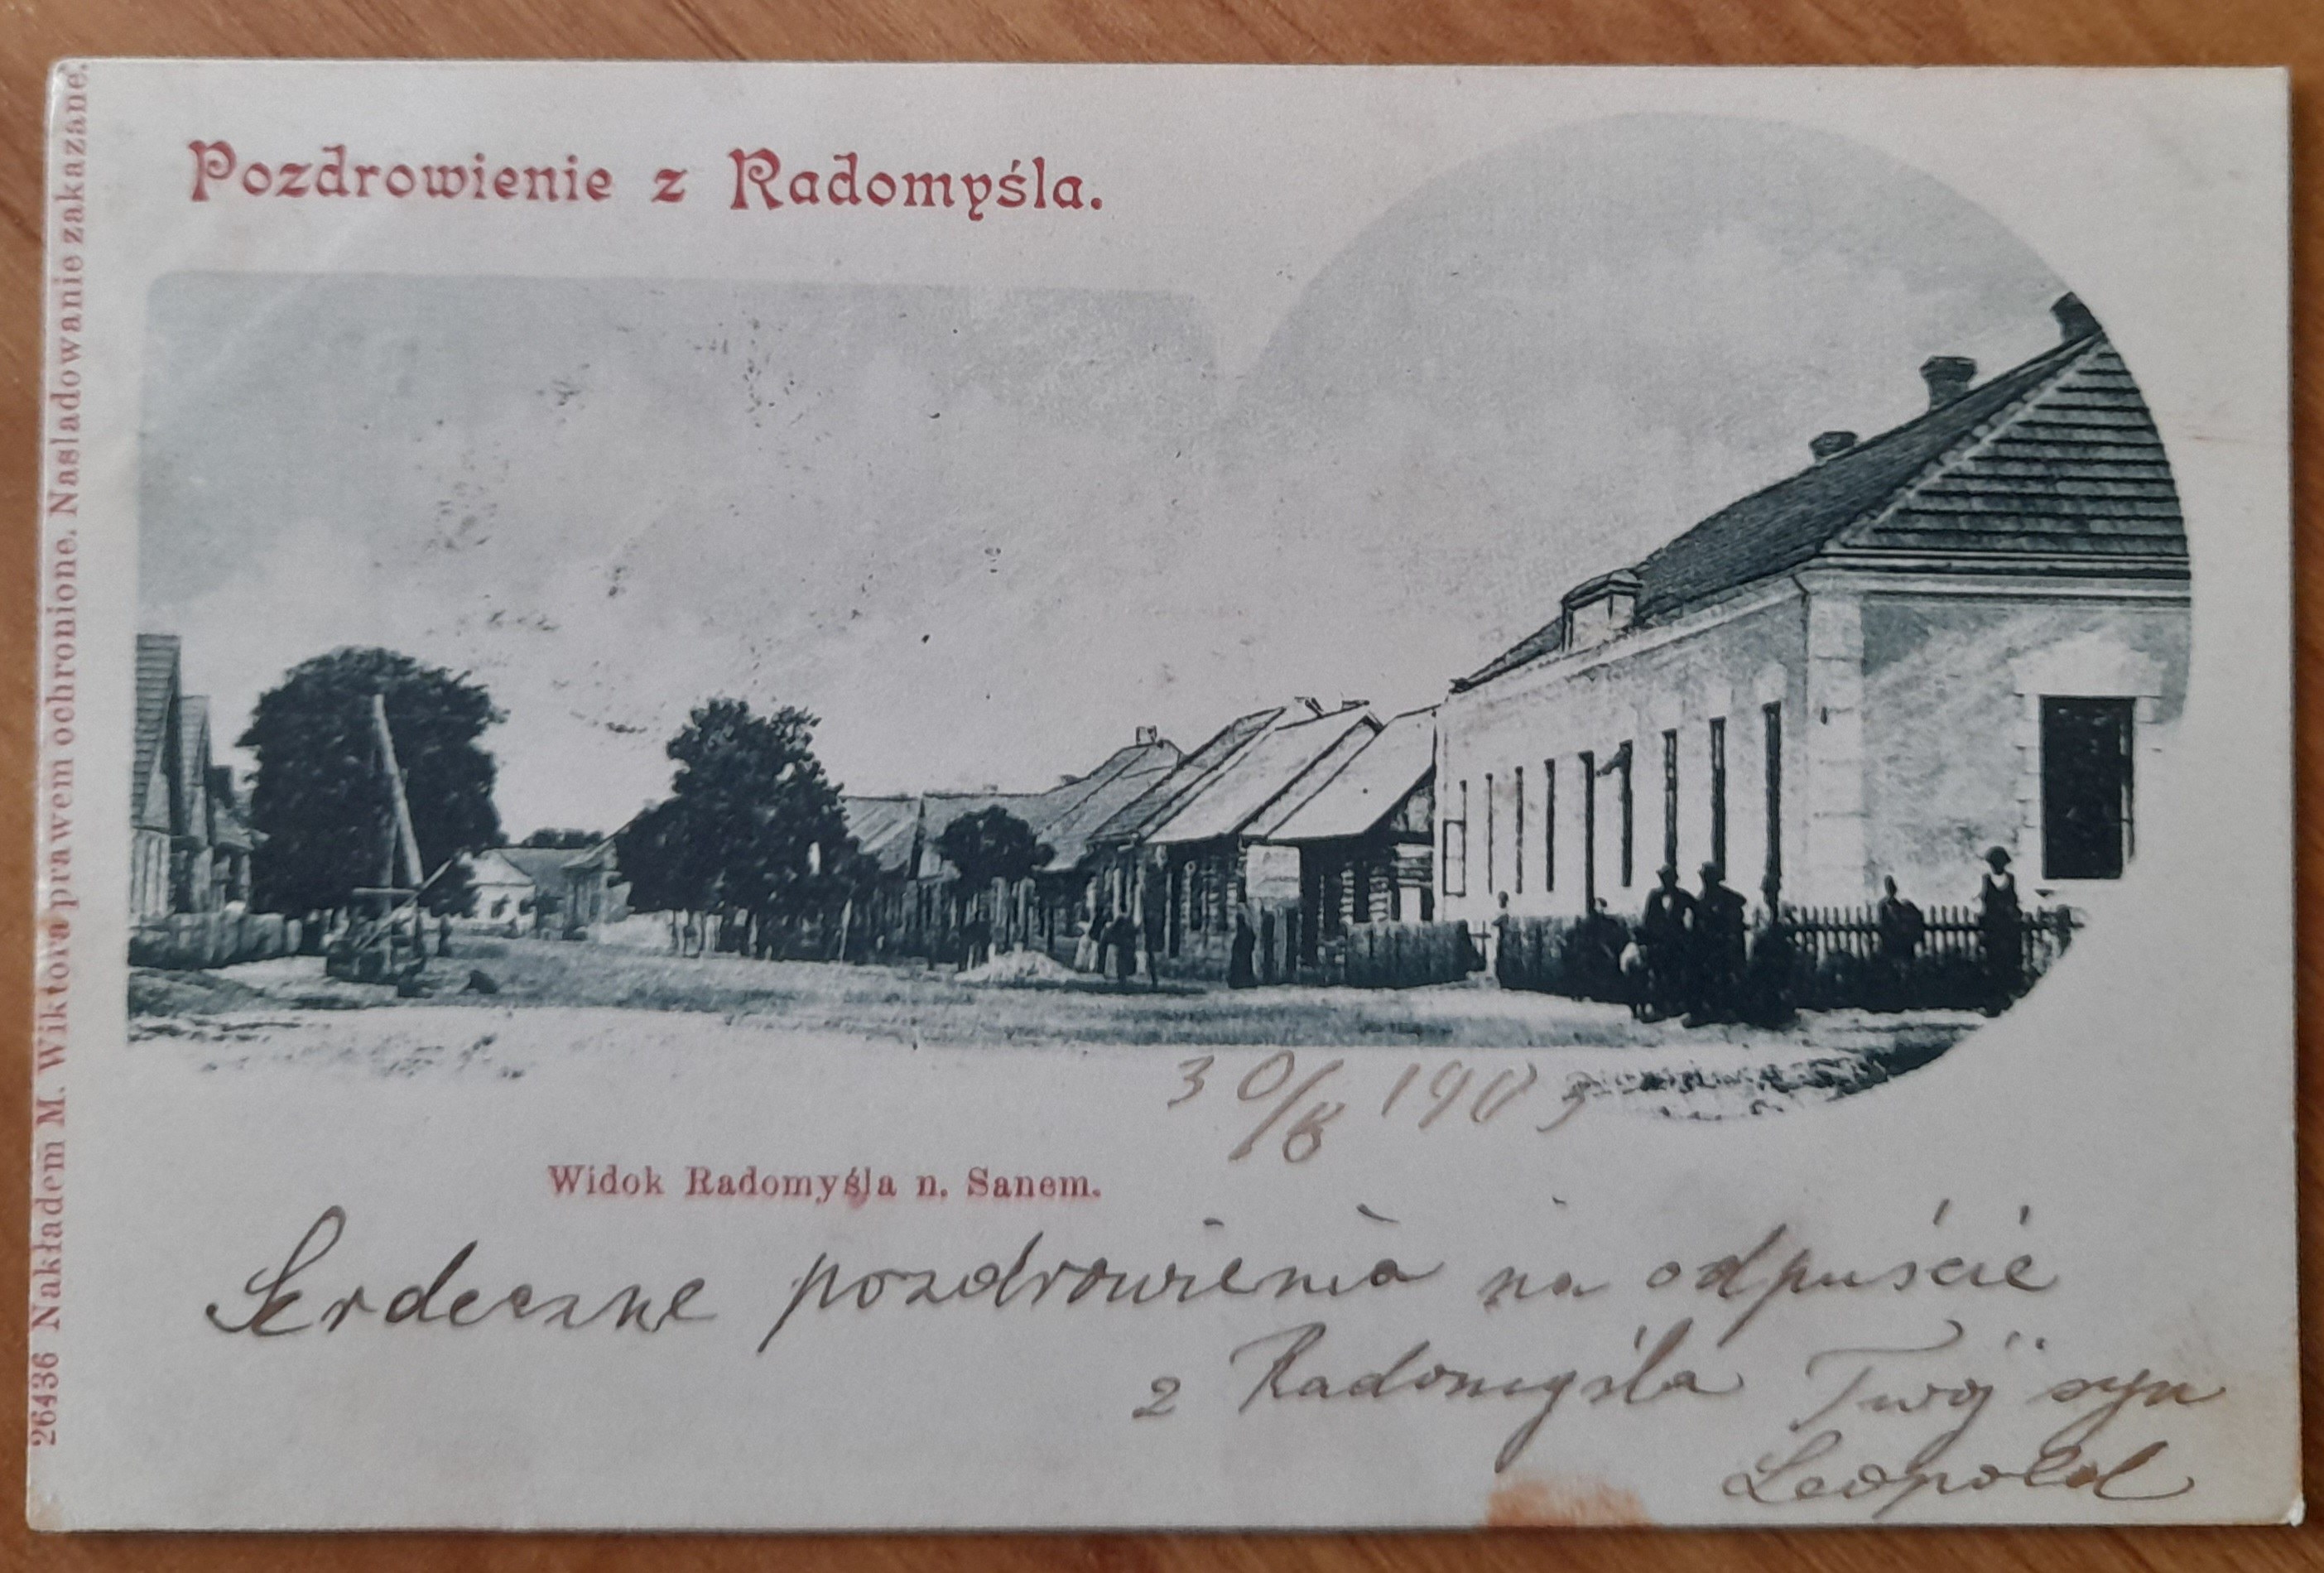 Pozdrowienie z Radomyśla.
26436 Nakładem M. Wiktora prawem ochronione. Nasladowanie zakazane.
30/8 1903
Widok Radomyśla n. Sanem.
Serdeczne pozdrowienia na odpuście
z Radomyśla Twój syn
Leopold